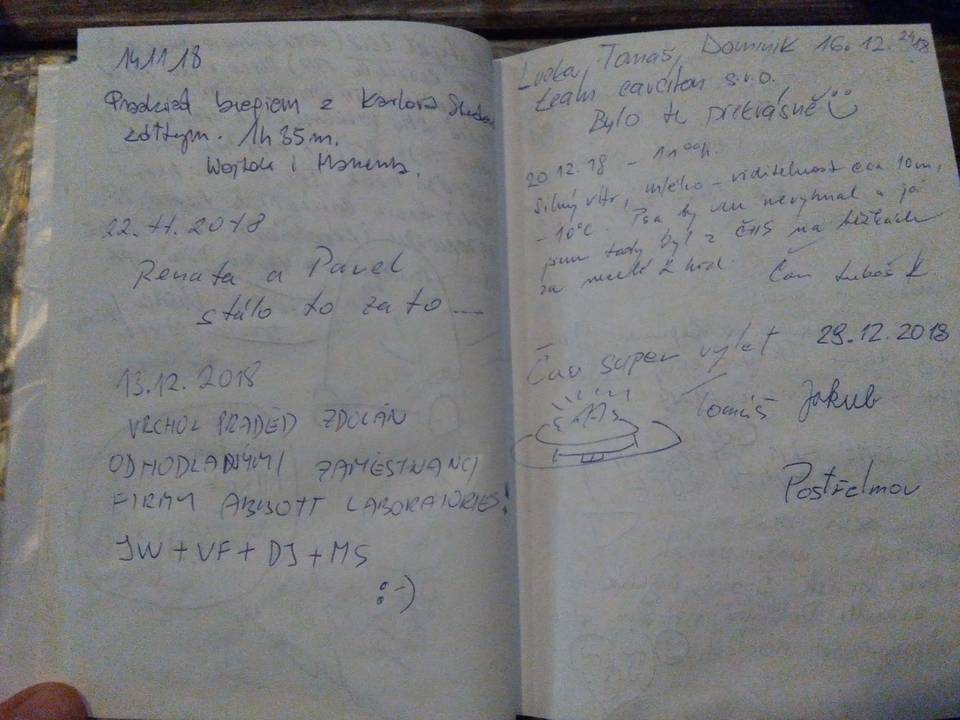 14.11.18
Pradziad biegiem z Karlova
żółtym. 1h 35m.
Wojtek i
22.11.2018
Renata a Pavel
stálo to za to...
13.12.2018
VRCHOL PRADĚD ZDOLÁN
ODHODLANÝMI ZAMĚSTNANCI
FIRMY ABBOTT LABORATORIES!
JW + VF + DJ + MS
:-)
Lucka, Tomáš, Dominik 16.12.2018
team s.r.o.
Bylo tu překrásně
20.12.18 - 11ººh.
Silný vítr, mléko - viditelnost cca 10m,
-10°C. Psa by ven nevyhnal a já
jsem tady byl z ČHS na běžkách
za 2 hod. Čau Luboš K
Čau super výlet 29.12.2018
Tomáš Jakub
Postřelmov